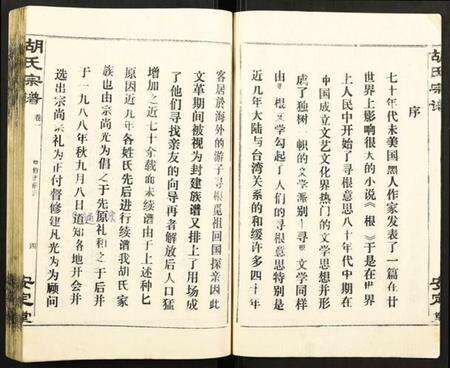 胡氏宗谱
序
七十年代末美国黑人作家发表了一篇在廿
世界上影响很大的小说《根》于是在世界
上人民中开始了寻根意思八十年代中期在
中国成立文艺文化界热门的文学思想并形
成了独树一帜的文学派别寻根文学同样
由根文学勾起了人们的寻根意思特别是
近几年大陆与台湾关系的和缓许多四十年
安定堂
客居於海外的游子寻根觅祖回国探亲因此
文革期间被视为封建族谱又排上了用场成
了他们寻找亲友的向导再者解放后人口猛
增加之近七十余载临未续谱由于上述种匕
原因近几年各姓氏先后进行续谱我胡氏家
族也由宗尚光为倡之于先原礼和之于后并
于一九八八年秋九月八日道知各地开会并
选出宗尚宗礼为正付督修建凡光为为顾问
胡氏宗谱
卷一
四
安定堂